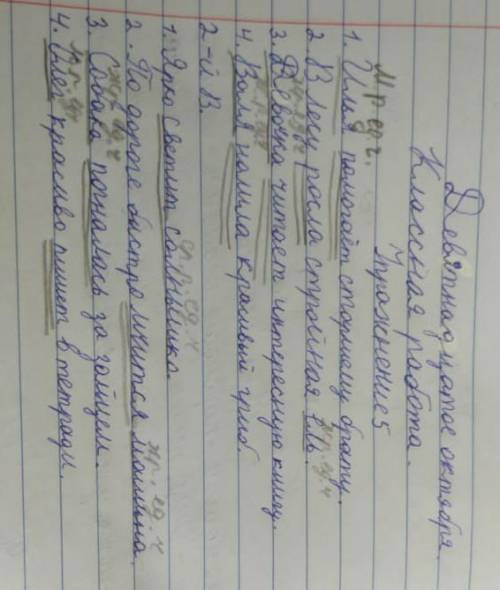 Девятнадцатое октября.
Классная работа.
Упражнение 5
м.р. ед.ч.
1. Илья помогает старшему брату.
ж.р. ед.ч
2. В лесу росла стройная ель.
3. Девочка читает интересную книгу.
4. Валя нашла красивый гриб.
2-й В.
с.р. ед.ч
1. Ярко светит солнышко.
ж.р. ед.ч
2. По дороге быстро мчится машина.
ж.р. ед.ч
3. Собака погналась за зайцем.
4. красиво пишет в тетради.